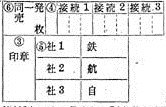 ⑥同一発売枚
④接続1 接続2 接続3
③印章
⑤社1 鉄
社2 航
社3 自